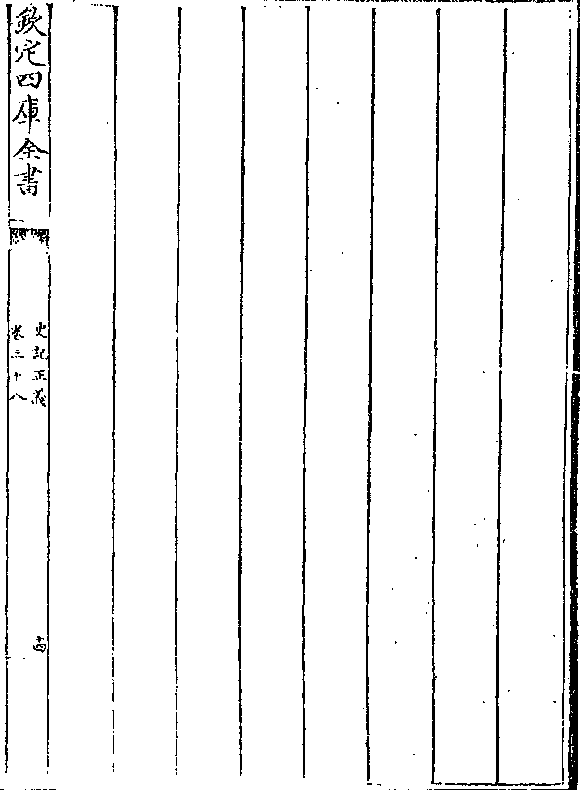 欽定四庫全書
史記正義
卷三十八
十四